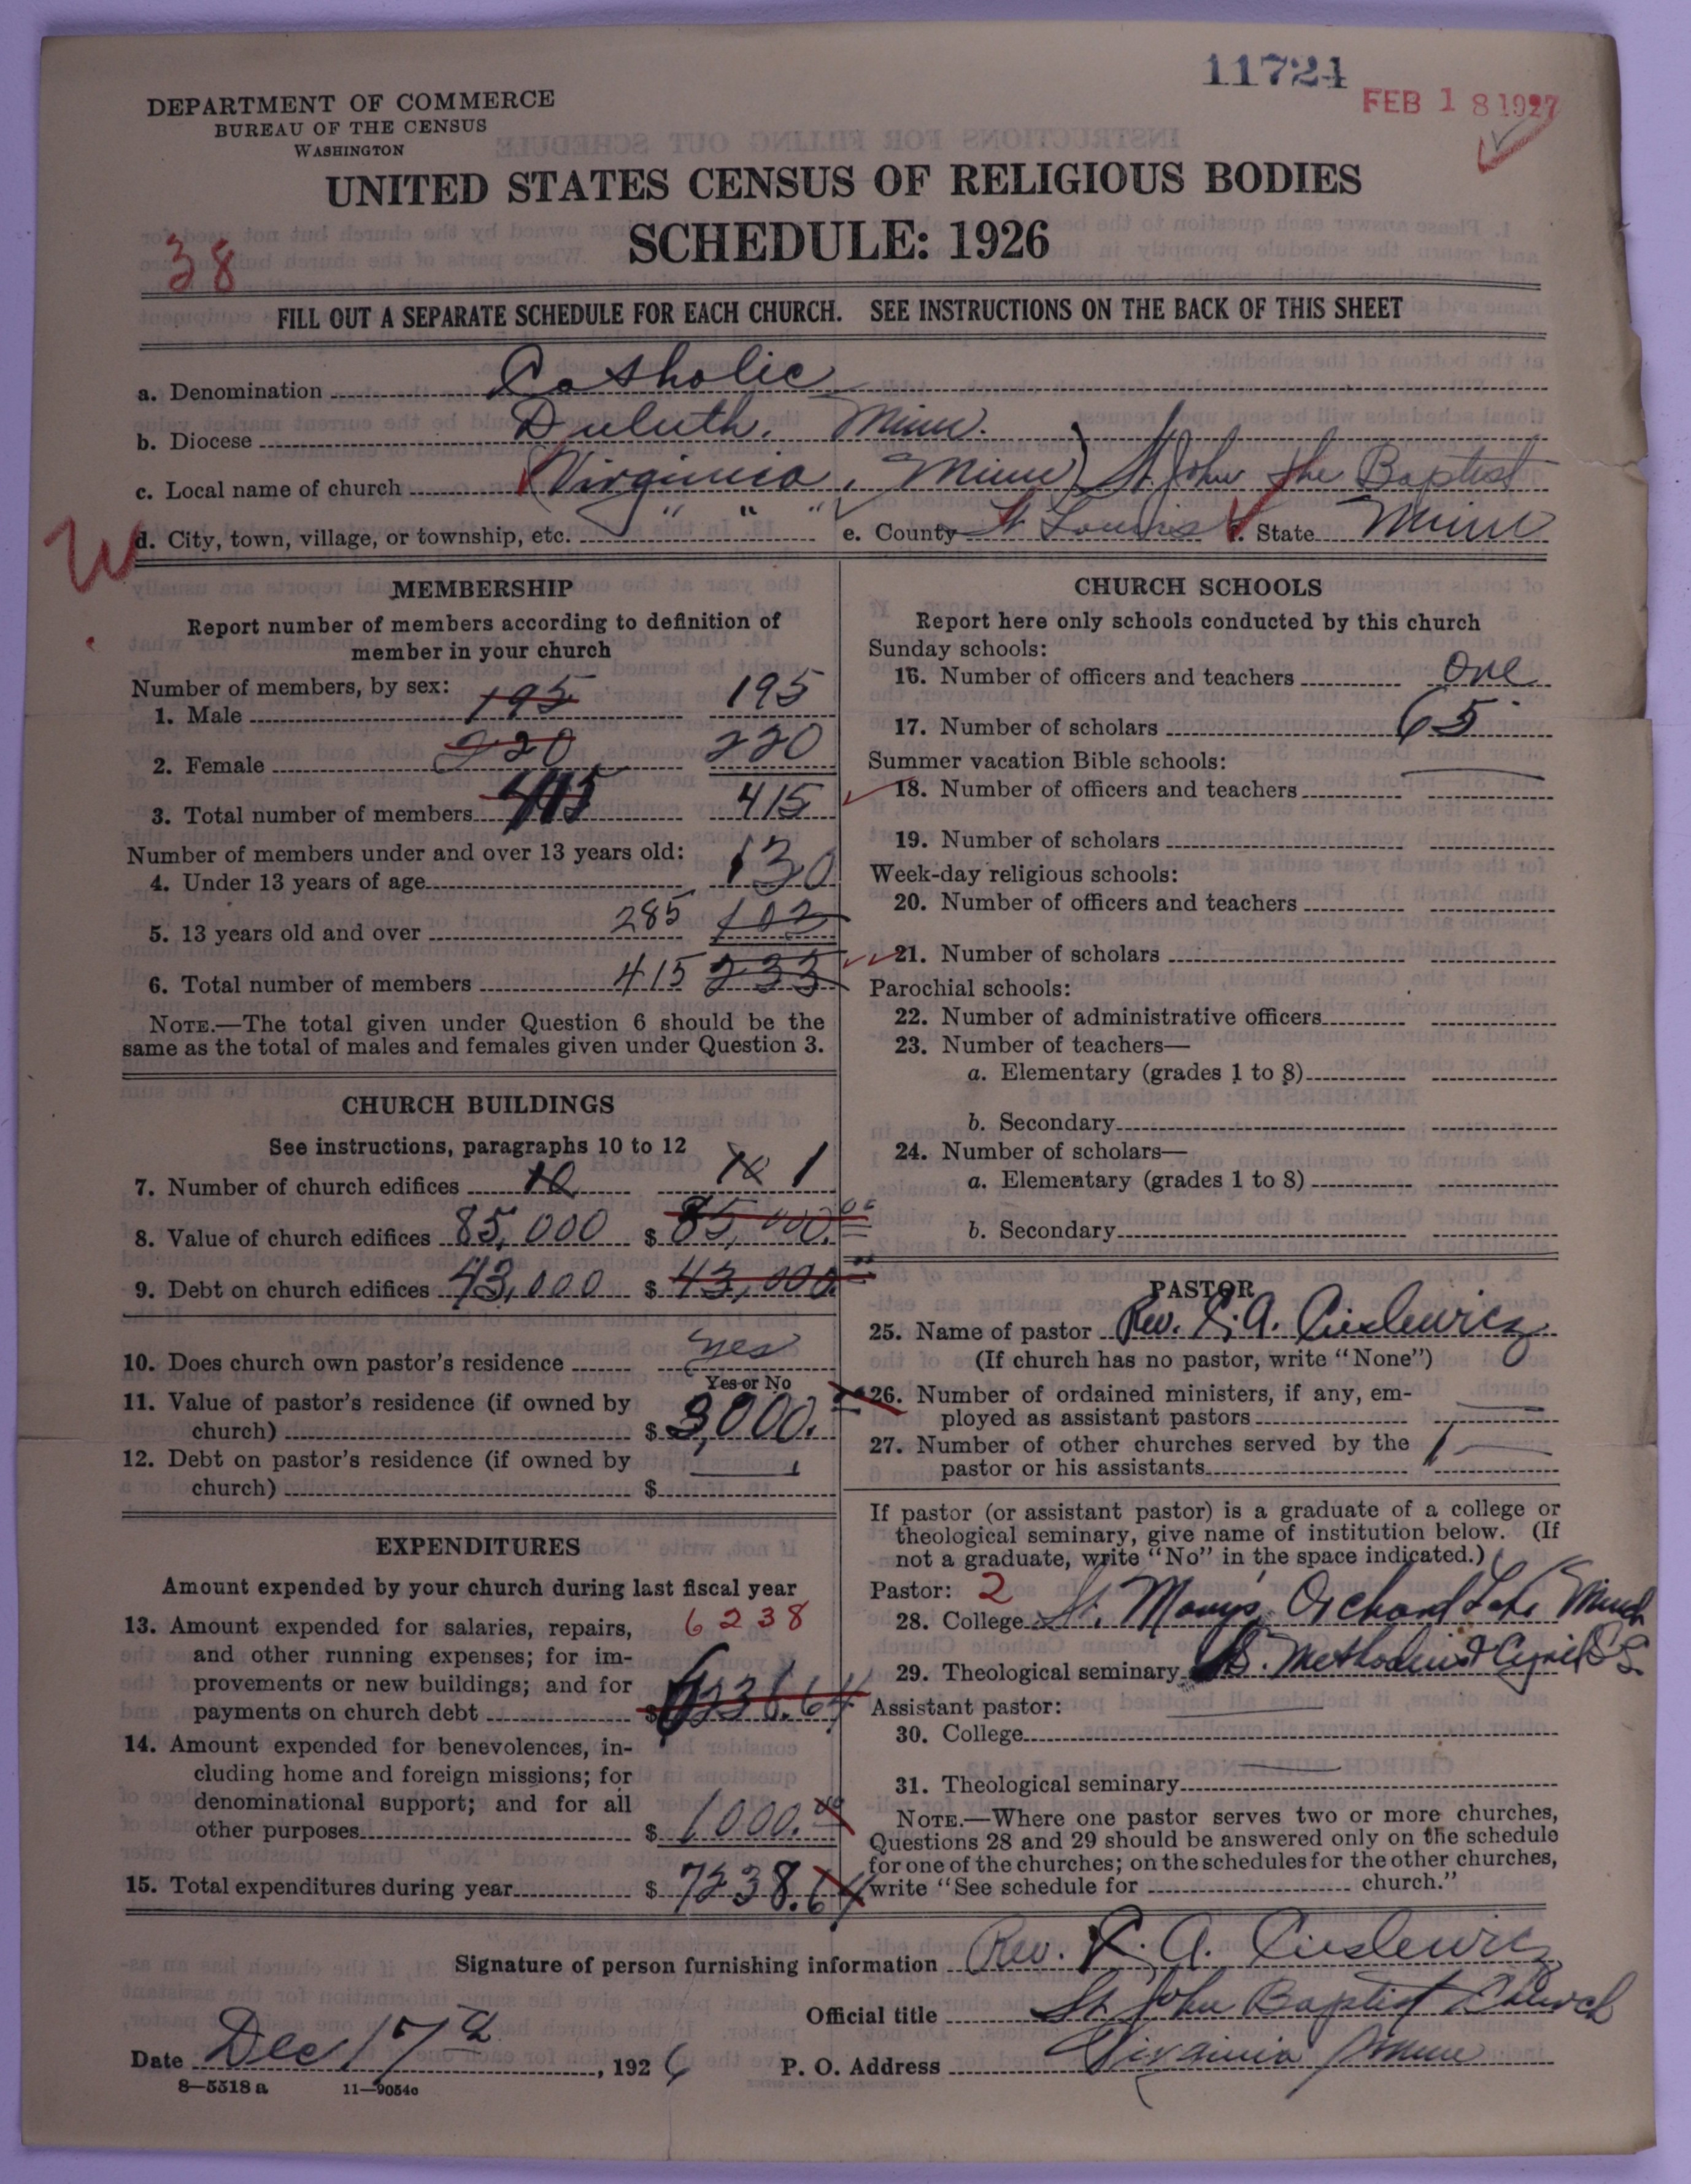 11724
FEB 18 1927
DEPARTMENT OF COMMERCE
BUREAU OF THE CENSUS
WASHINGTON
UNITED STATES CENSUS OF RELIGIOUS BODIES
SCHEDULE: 1926
38
FILL OUT A SEPARATE SCHEDULE FOR EACH CHURCH. SEE INSTRUCTIONS ON THE BACK OF THIS SHEET
a. Denomination Catholic
b. Diocese Duluth, Minn.
c. Local name of church (Virginia, Minn) St John the Baptist
d. City, town, village, or township, etc. " " " e. County St Louis f. State Minn
MEMBERSHIP
Report number of members according to definition of
member in your church
Number of members, by sex:
1. Male 195 195
2. Female 220 220
3. Total number of members 415 415
Number of members under and over 13 years old:
4. Under 13 years of age 130
5. 13 years old and over 285 102
6. Total number of members 415 233
NOTE.—The total given under Question 6 should be the
same as the total of males and females given under Question 3.
CHURCH BUILDINGS
See instructions, paragraphs 10 to 12
7. Number of church edifices 1
8. Value of church edifices 85,000 $ 85,000.00
9. Debt on church edifices 43,000 $ 43,000.
10. Does church own pastor's residence yes
Yes or No
11. Value of pastor's residence (if owned by
church) $ 3,000.
12. Debt on pastor's residence (if owned by
church) $
EXPENDITURES
Amount expended by your church during last fiscal year
13. Amount expended for salaries, repairs, 6238
and other running expenses; for im-
provements or new buildings; and for
payments on church debt $ .64
14. Amount expended for benevolences, in-
cluding home and foreign missions; for
denominational support; and for all
other purposes $ 1000.00
15. Total expenditures during year $ 7238.64
CHURCH SCHOOLS
Report here only schools conducted by this church
Sunday schools:
16. Number of officers and teachers one
17. Number of scholars 65
Summer vacation Bible schools:
18. Number of officers and teachers
19. Number of scholars
Week-day religious schools:
20. Number of officers and teachers
21. Number of scholars
Parochial schools:
22. Number of administrative officers
23. Number of teachers—
a. Elementary (grades 1 to 8)
b. Secondary
24. Number of scholars—
a. Elementary (grades 1 to 8)
b. Secondary
PASTOR
25. Name of pastor Rev. A. Cieslewicz
(If church has no pastor, write "None")
26. Number of ordained ministers, if any, em-
ployed as assistant pastors
27. Number of other churches served by the
pastor or his assistants
If pastor (or assistant pastor) is a graduate of a college or
theological seminary, give name of institution below. (If
not a graduate, write "No" in the space indicated.)
Pastor: 2
28. College St. Marys, Orchard Lake Mich
29. Theological seminary S. Methodius & Cyril
Assistant pastor:
30. College
31. Theological seminary
NOTE.—Where one pastor serves two or more churches,
Questions 28 and 29 should be answered only on the schedule
for one of the churches; on the schedules for the other churches,
write "See schedule for church."
Signature of person furnishing information Rev. A. Cieslewicz
Official title St. John Baptist Church
Date Dec 17 , 1926 P. O. Address Virginia Minn
8—5518 a 11—9054c